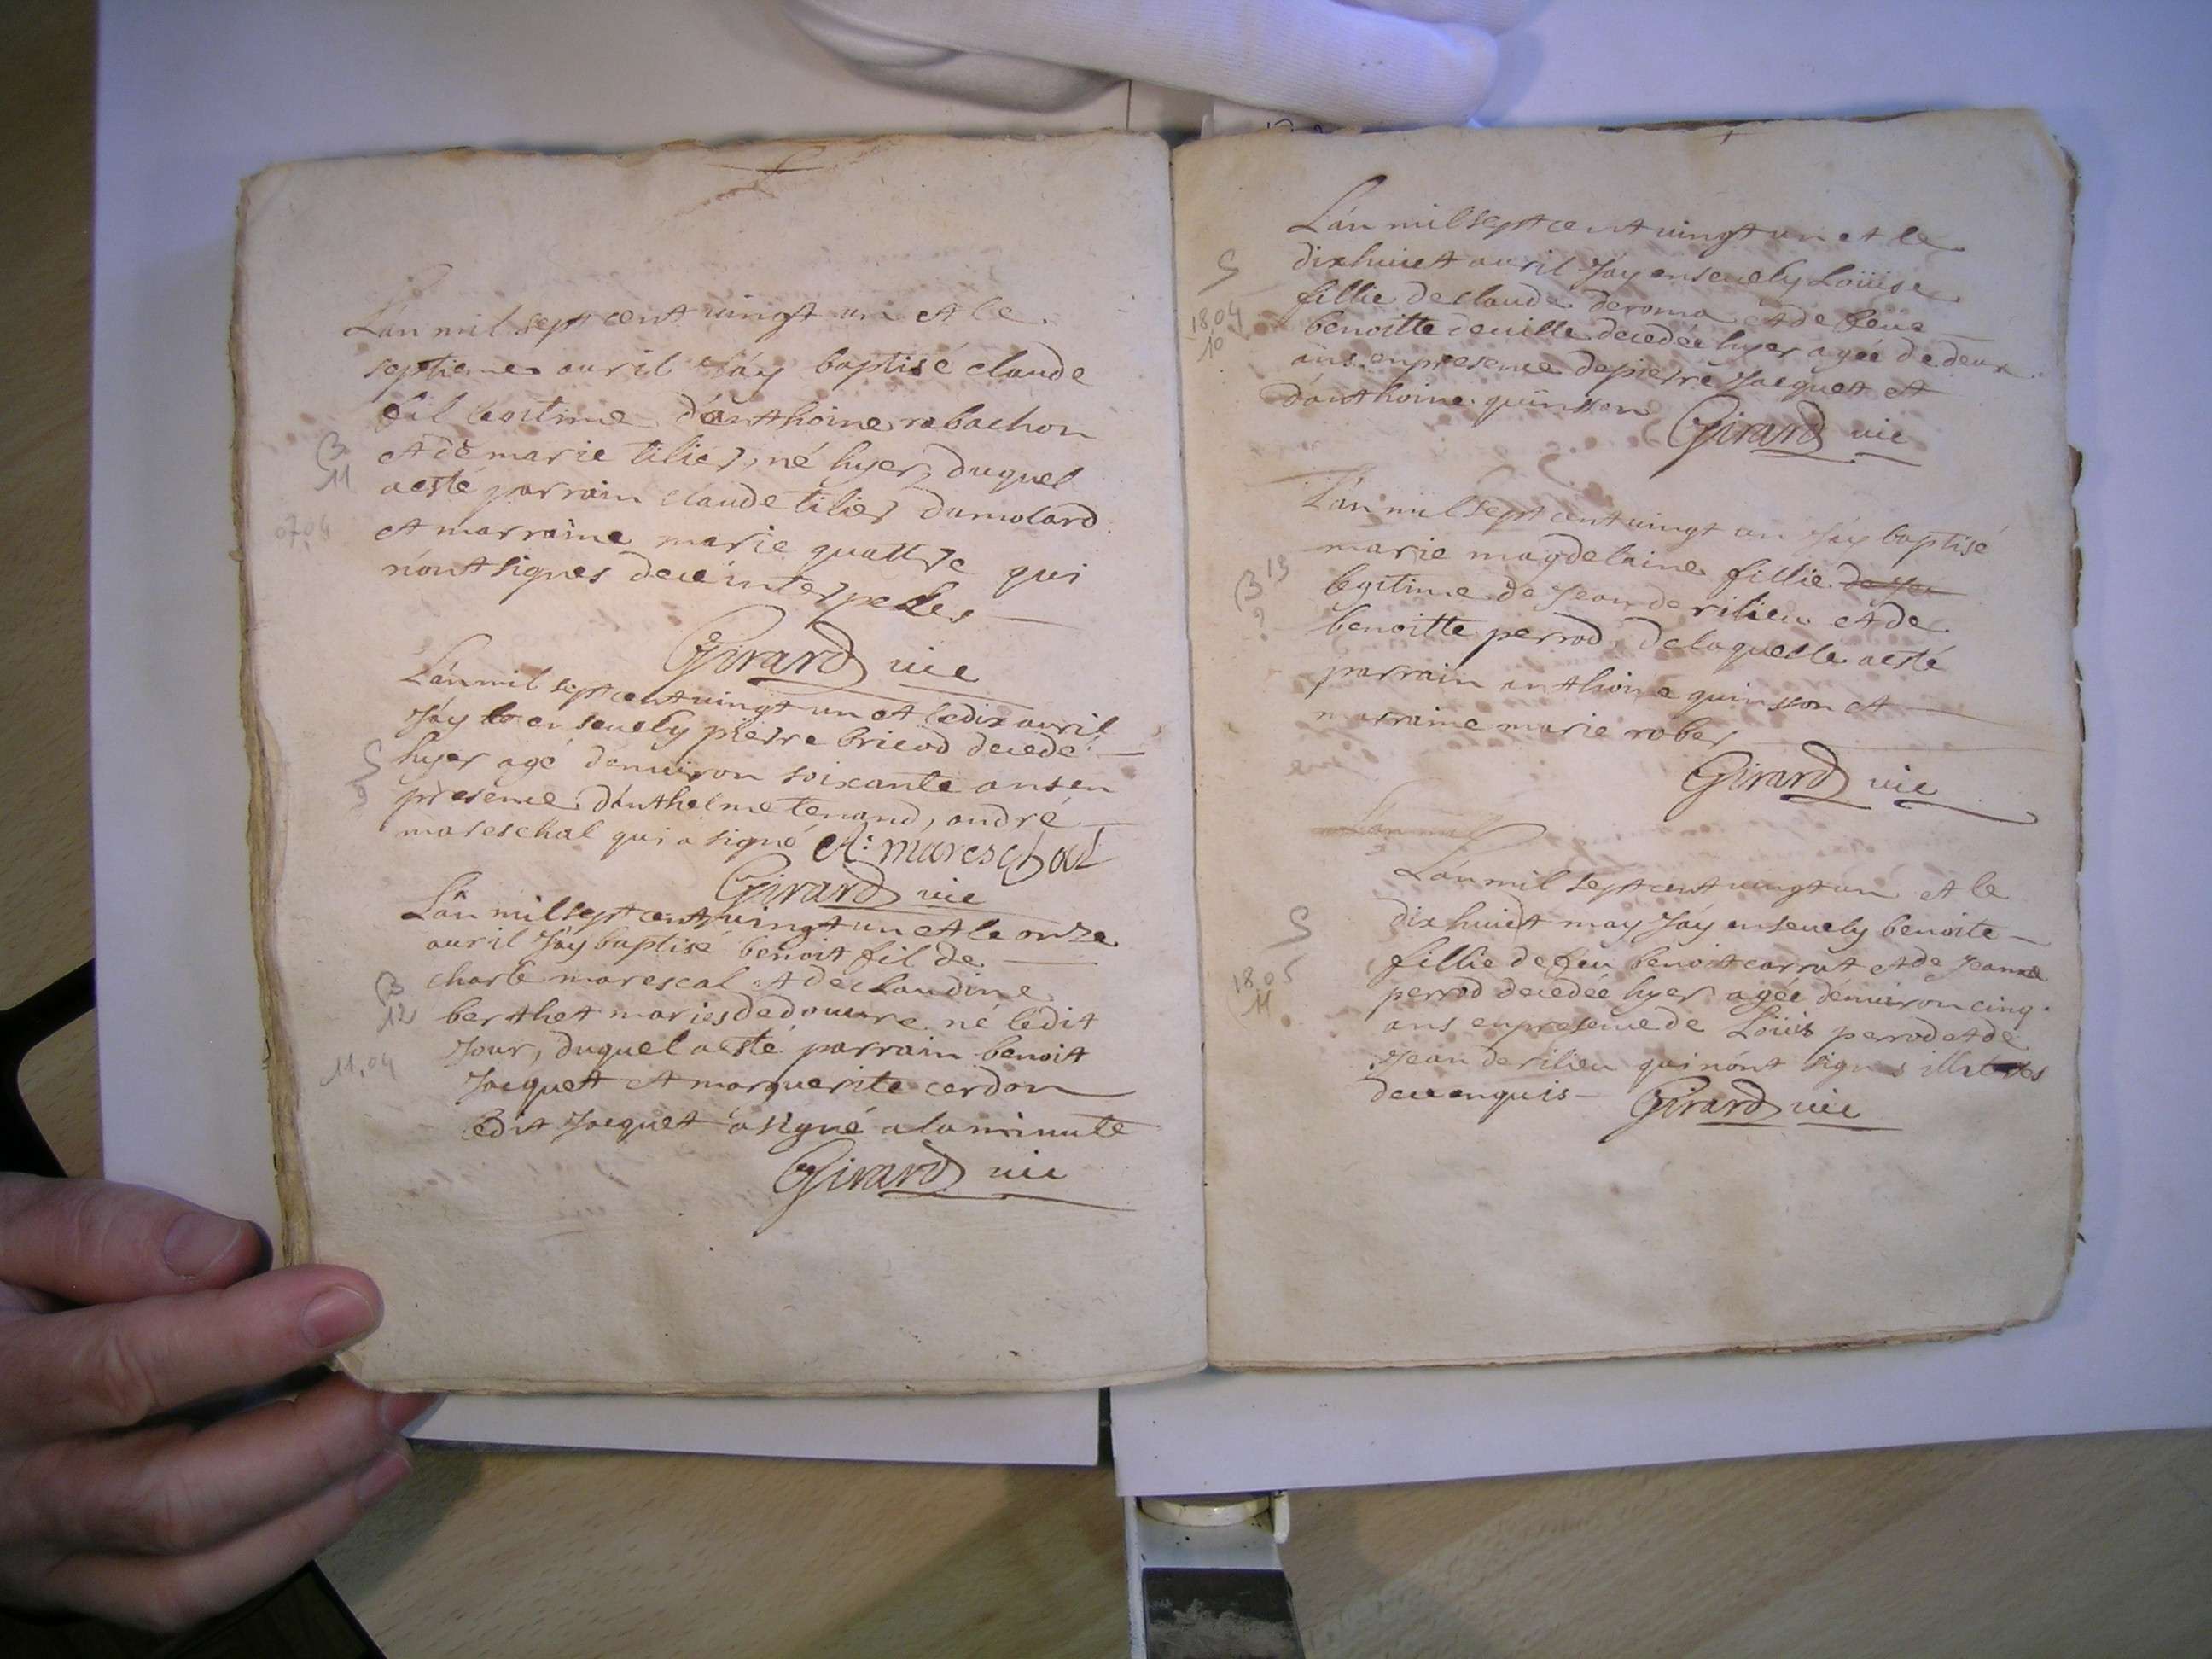 L'an mil sept cent vingt un et le
septieme avril J'ay baptisé claude
fil legitime d'anthoine rabachon
et de marie tilier, né hyer, duquel
a esté parrain claude tilier dumolard
et marraine marie quattre qui
n'ont signés de ce interpelles
B
11
07.04
Girard vic
L'an mil sept cent vingt un et le dix avril
J'ay ensevely pierre bricod decedé
hyer agé d'environ soixante ans en
presence d'anthelme tenand, andré
mareschal qui a signé A: mareschal
S
9
Girard vic
L'an mil sept cent vingt un et le onze
avril J'ay baptisé benoit fil de
charle marescal et de claudine
berthet mariés de douvre né ledit
Jour, duquel a esté parrain benoit
Jacquet et marguerite cerdon
ledit Jacquet a signé a la minute
B
12
11.04
Girard vic
L'an mil sept cent vingt un et le
dixhuict avril J'ay ensevely Loüise
fillie de claude deroma et de feüe
benoitte deville decedée hyer agée de deux
ans en presence de pierre Jacquet et
d'anthoine quinson Girard vic
S
18.04
10
L'an mil sept cent vingt un J'ay baptisé
marie magdelaine fillie
legitime de Jean de rilieu et de
benoitte perrod, de laquelle a esté
parrain anthoine quinsson et
marraine marie rober
B 13
?
Girard vic
L'an mil
L'an mil sept cent vingt un et le
dix huict may J'ay ensevely benoite
fillie de feu benoit carrat et de Jeanne
perrod decedée hyer agée d'environ cinq
ans en presence de Loüis perrod et de
Jean de rilieu qui n'ont signés illiterés
de ce enquis Girard vic
S
18.05
11